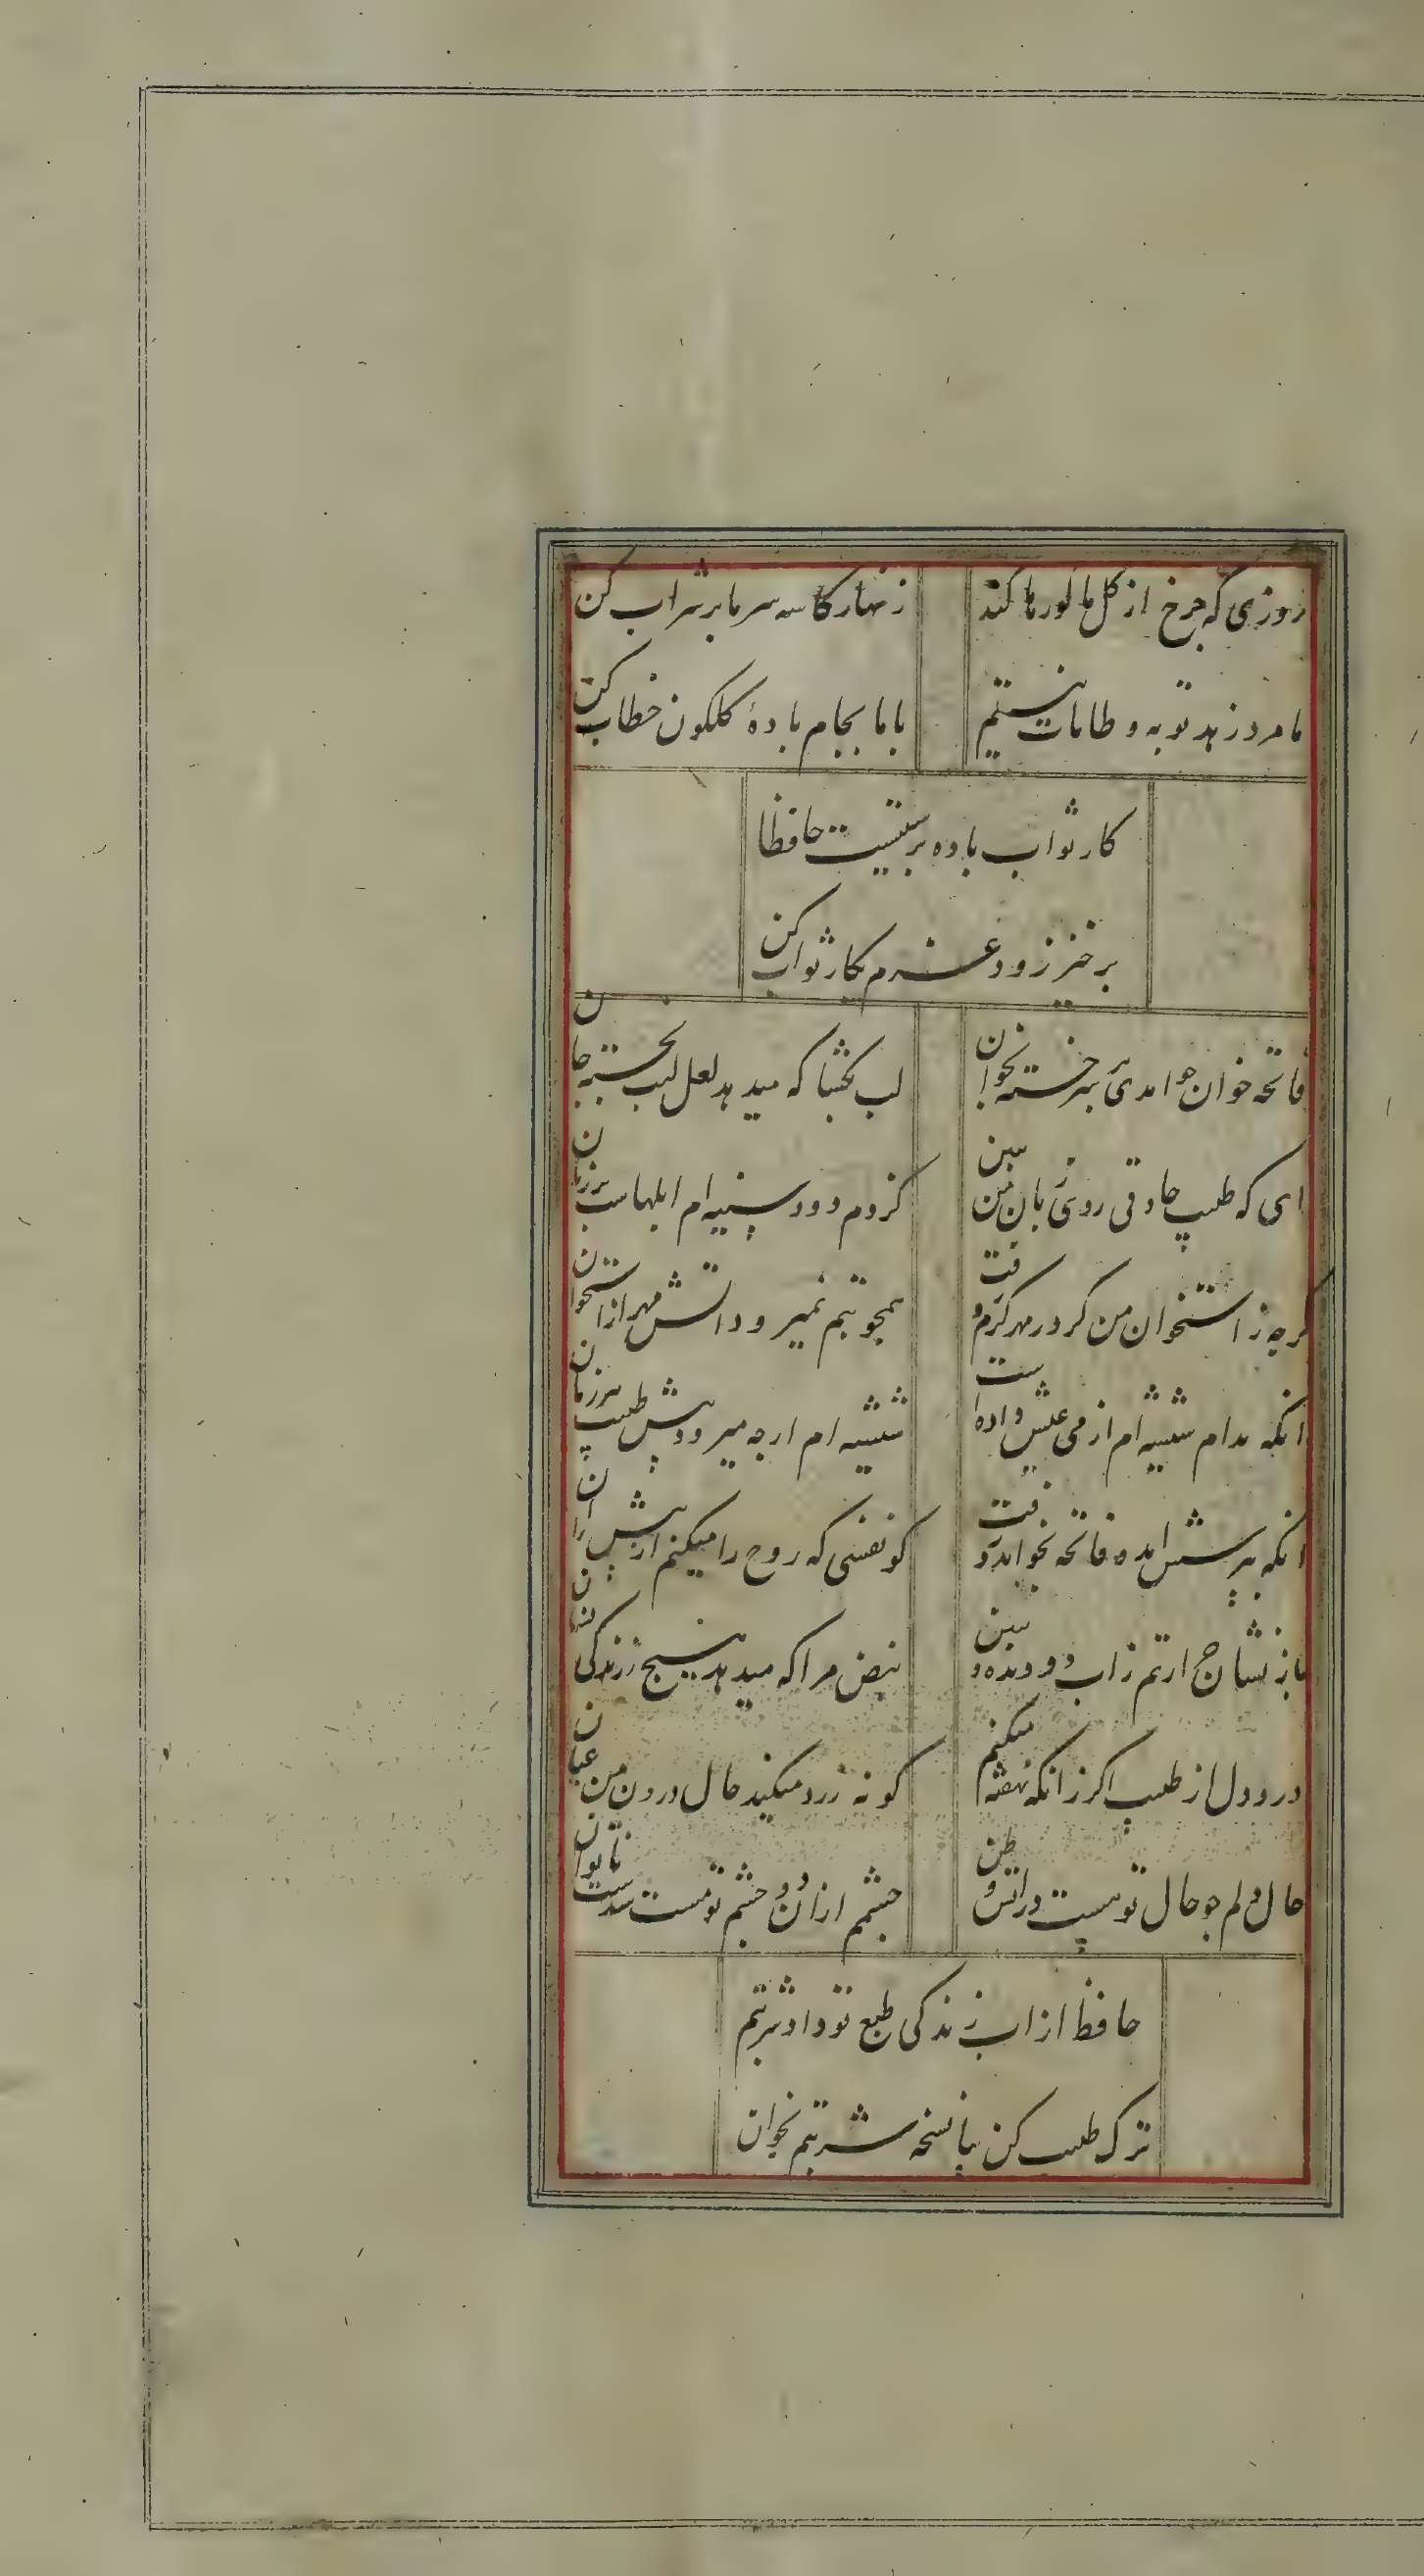 روزی که چرخ از کل ما کوزها کند
زنهار کاسه سر ما پر شراب کن
ما مرد زهد توبه و طامات نیستیم
با ما بجام بادهٔ کلکون خطاب کن
کار ثواب باده پرستیست حافظا
برخیز زود عزم بکار ثواب کن
فاتحه خوان جو امدی بر سر خسته بخوان
لب بکشا که میدهد لعل لبت بخسته جان
ای که طبیب حاذقی روی زبان من ببین
کزدم دود سینه ام بار دلست بر زبان
کرچه ز استخوان من کرد در مهر کرم و رفت
همچو تبم نمیرود اتش مهر از استخوان
انکه مدام شیشه ام از می عیش داده است
شیشه ام ارچه میرود پیش طبیب هر زمان
انکه بپرسش امده فاتحه خواند و رفت
کو نفسی که روح را میکنم از پیش روان
باز نشان ارتم زاب دو دیده و ببین
نبض مرا که میدهد هیچ ز زندکی نشان
درد دل از طبیب اکر زانکه نهفته میکنم
کونه زرد میکند حال درون من عیان
حال دلم جو خال تو هست در اتش وطن
جشمم ازان دو جشم تو مست شدست ناتوان
حافظ از اب زندکی طبع تو داد شربتم
ترک طبیب کن بیا نسخه شربتم بخوان